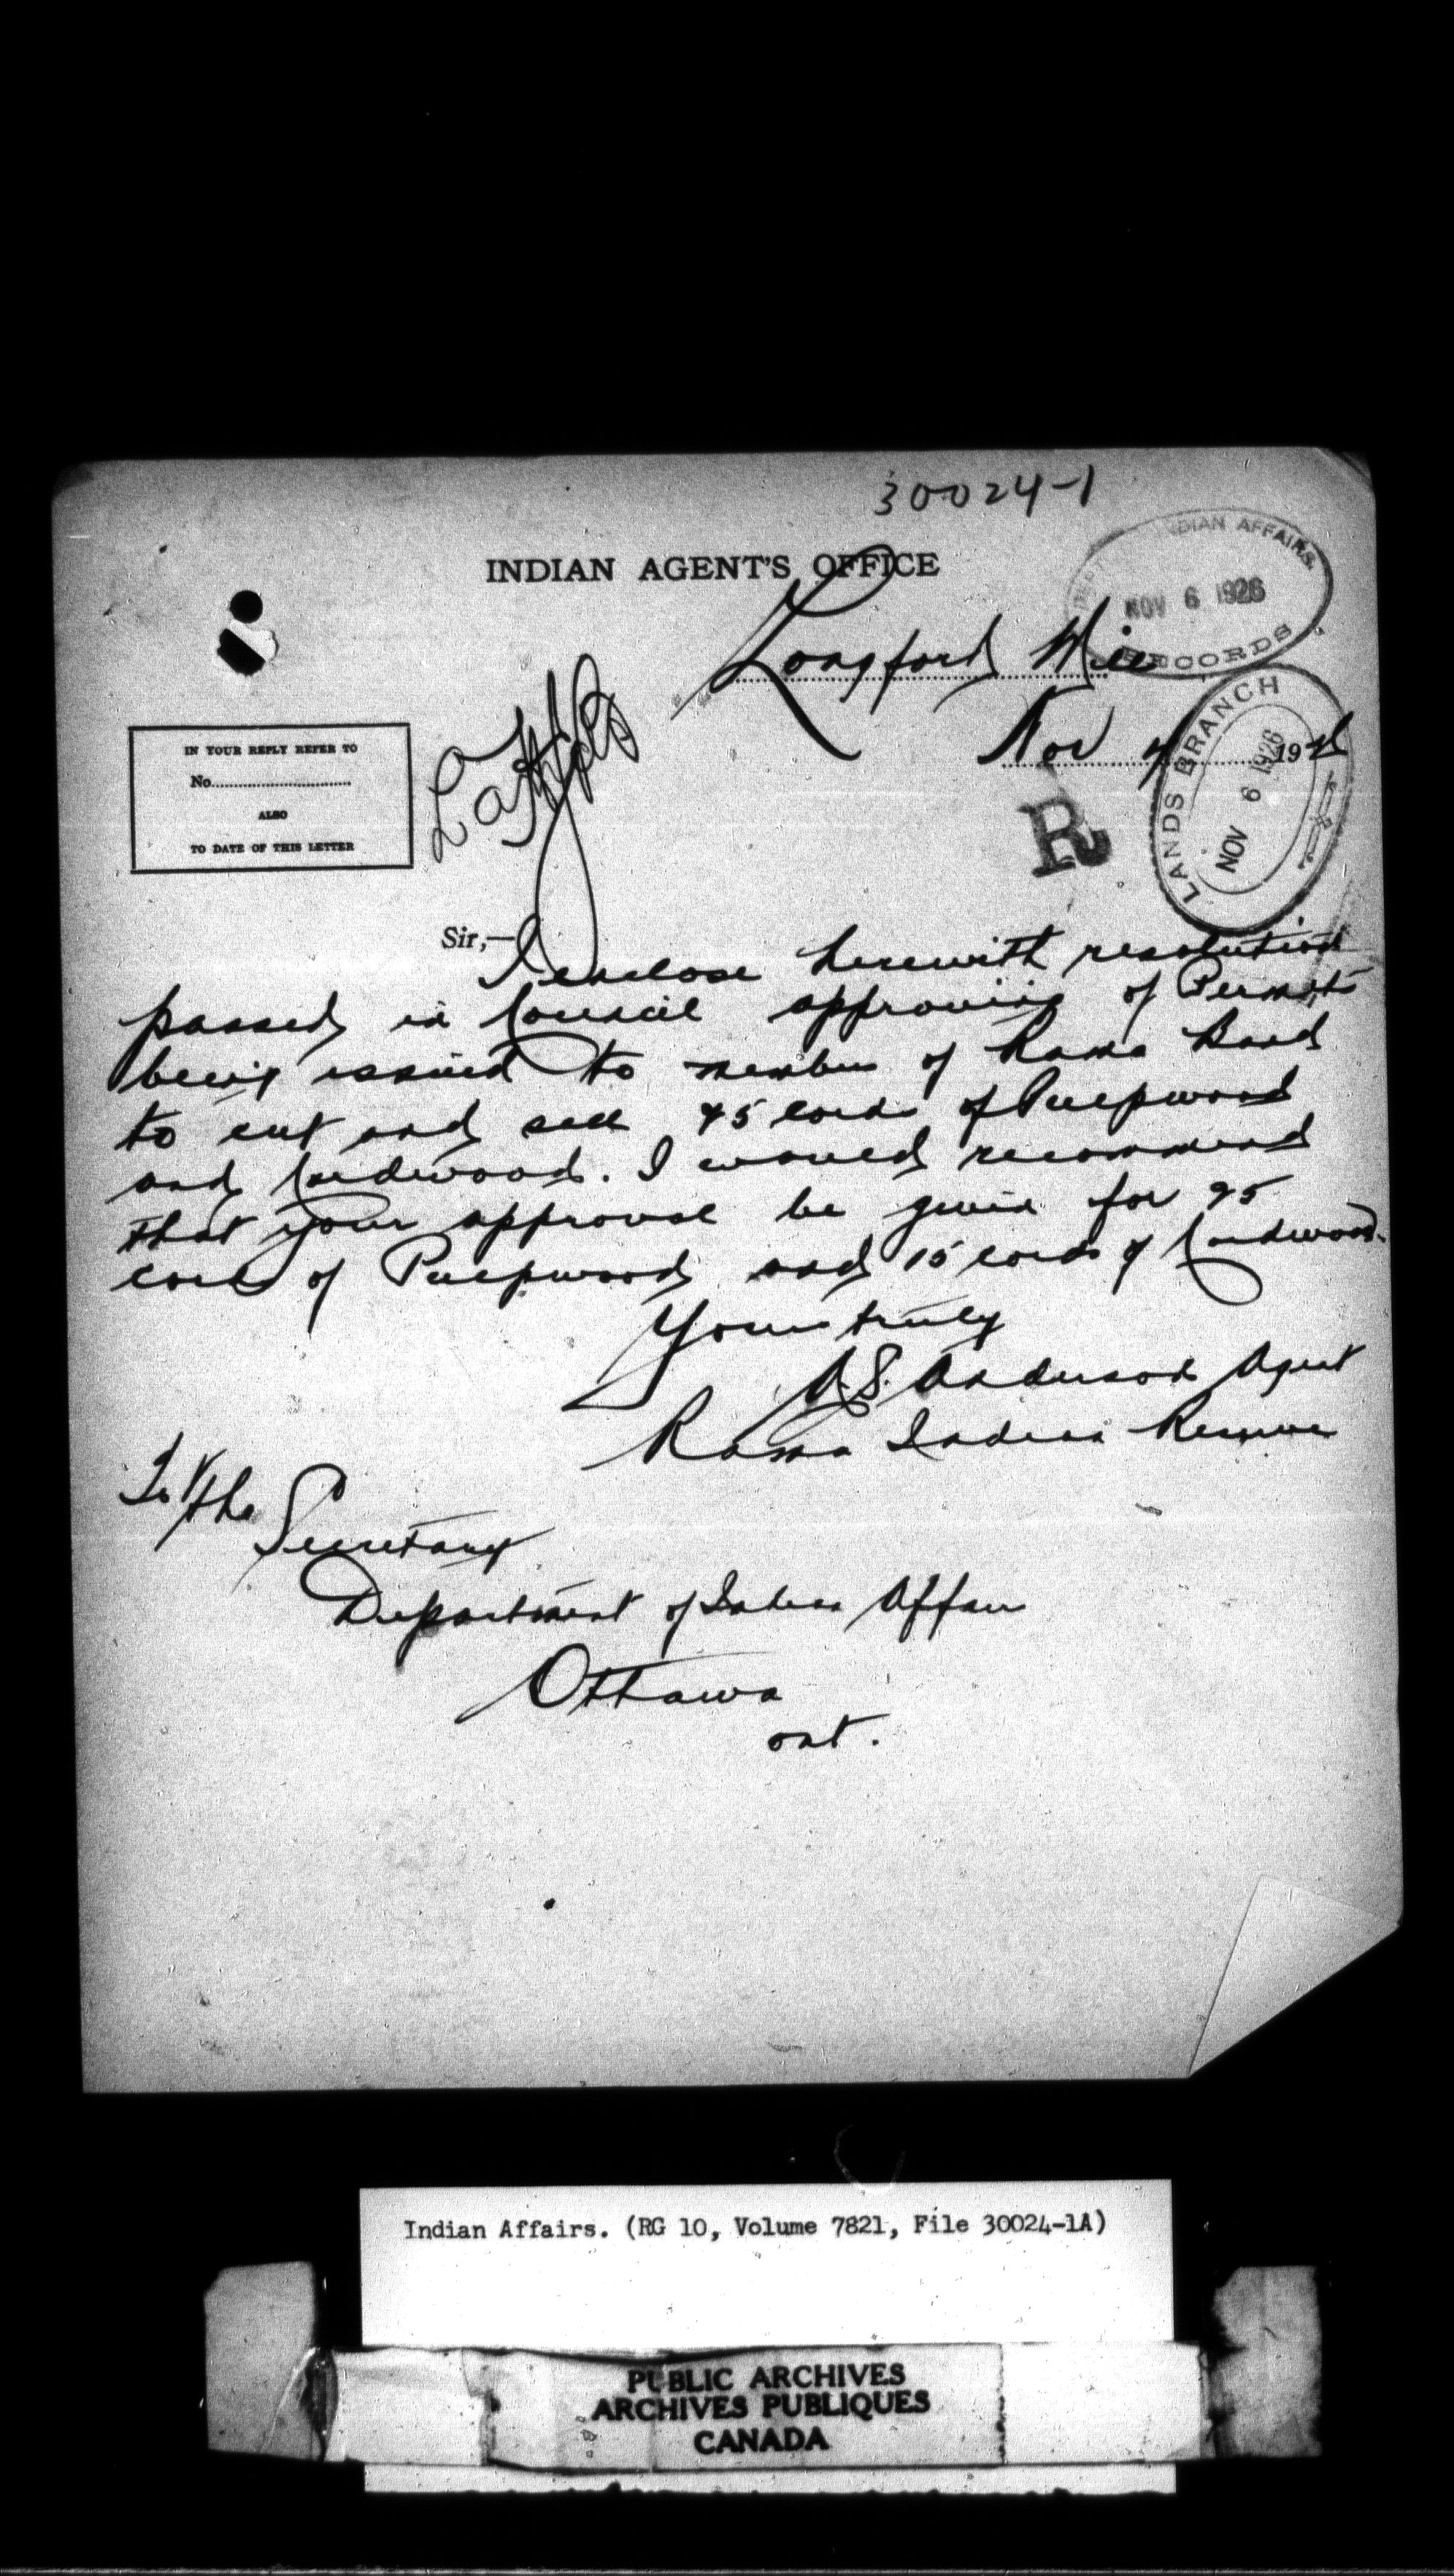 30024-1
INDIAN AGENT'S OFFICE
DEPT INDIAN AFFAIRS.
NOV 6 1926
RECORDS
Longford Mill
Nov 4 192
LANDS BRANCH
NOV 6 1926
R
IN YOUR REPLY REFER TO
No.
ALSO
TO DATE OF THIS LETTER
Sir,—
I enclose herewith resolution
passed in Council approving of Permits
being issued to members of Rama Band
to cut and sell cords of Pulpwood
and Cordwood. I would recommend
that your approval be given for
cords of Pulpwood and 15 cords of Cordwood.
Yours truly
A.S. Anderson Agent
Rama Indian Reserve
To the
Secretary
Department of Indian Affairs
Ottawa
ont.
Indian Affairs. (RG 10, Volume 7821, File 30024-1A)
PUBLIC ARCHIVES
ARCHIVES PUBLIQUES
CANADA